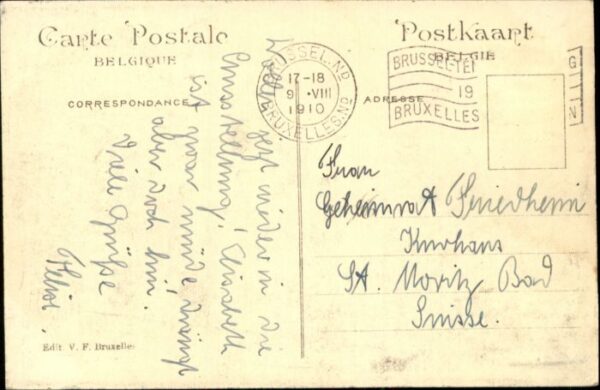 Carte Postale
BELGIQUE
CORRESPONDANCE
Postkaart
BELGIE
ADRESSE
BRUSSEL.ND
17-18
9 .VIII
1910
BRUXELLES.ND
BRUSSEL-TEN
19
BRUXELLES
jetzt wieder in die
Ausstellung! Elisabeth
ist zwar müde,
aber doch hin.
Viele Grüße
Frau
Geheimrat Friedheim
Kurhaus
St. Moritz Bad
Suisse.
Edit V. F. Bruxelles